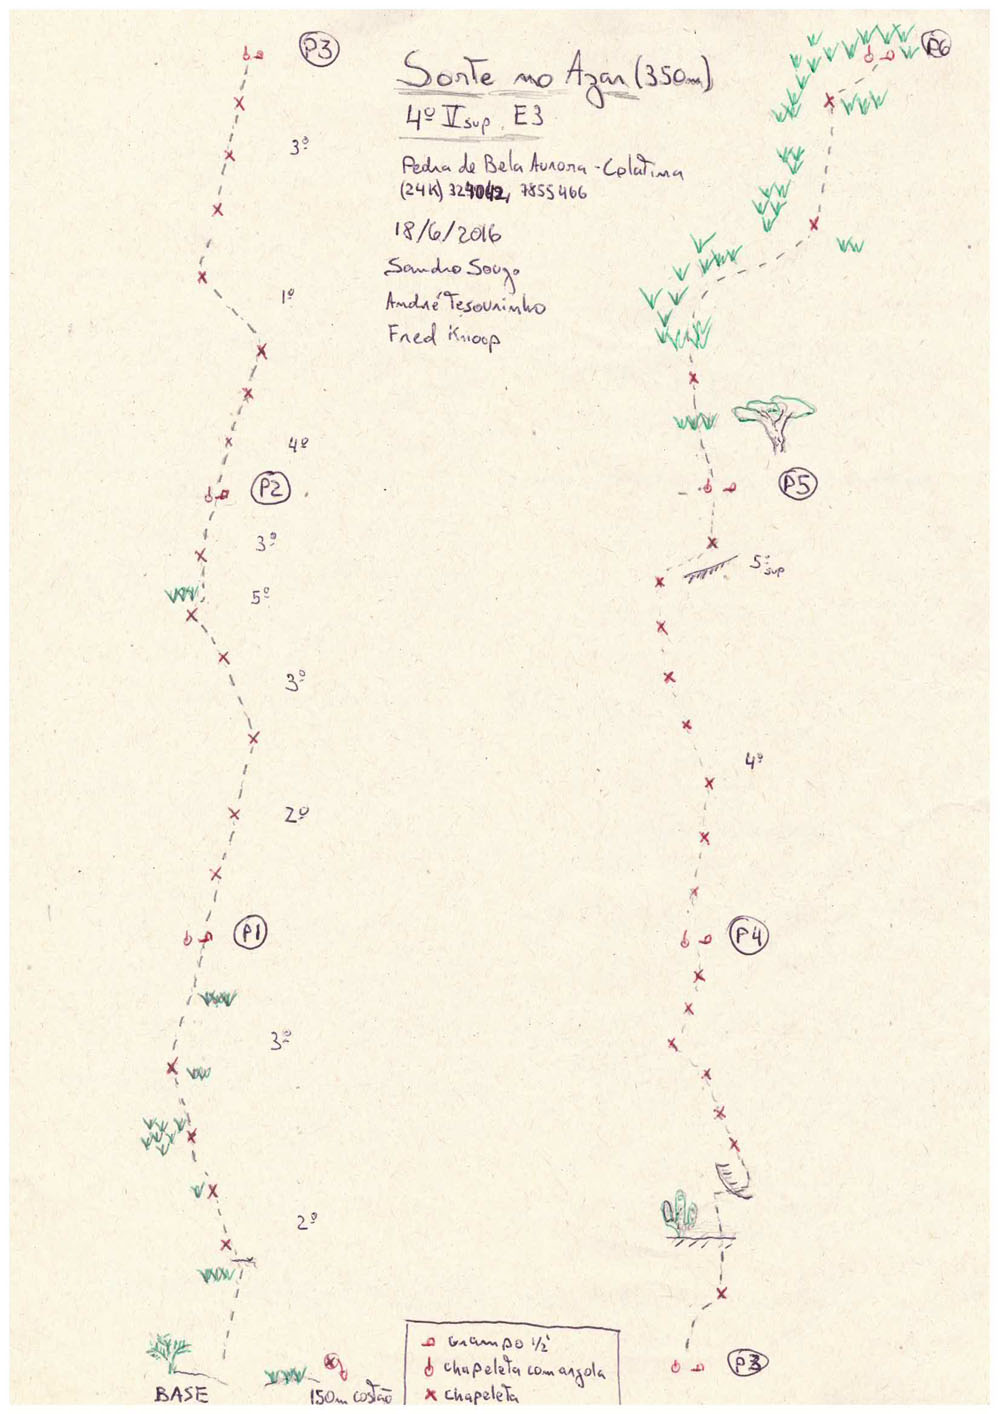 Sorte no Azar (350m)
4º Vsup E3
Pedra de Bela Aurora - Colatina
(24K) 7855466
18/6/2016
Sandro Souza
André Tesourinho
Fred Knoop
P3
3º
1º
4º
P2
3º
5º
3º
2º
P1
3º
2º
BASE
150m costão
P6
P5
5º sup
4º
P4
P3
Grampo 1/2"
chapeleta com argola
chapeleta